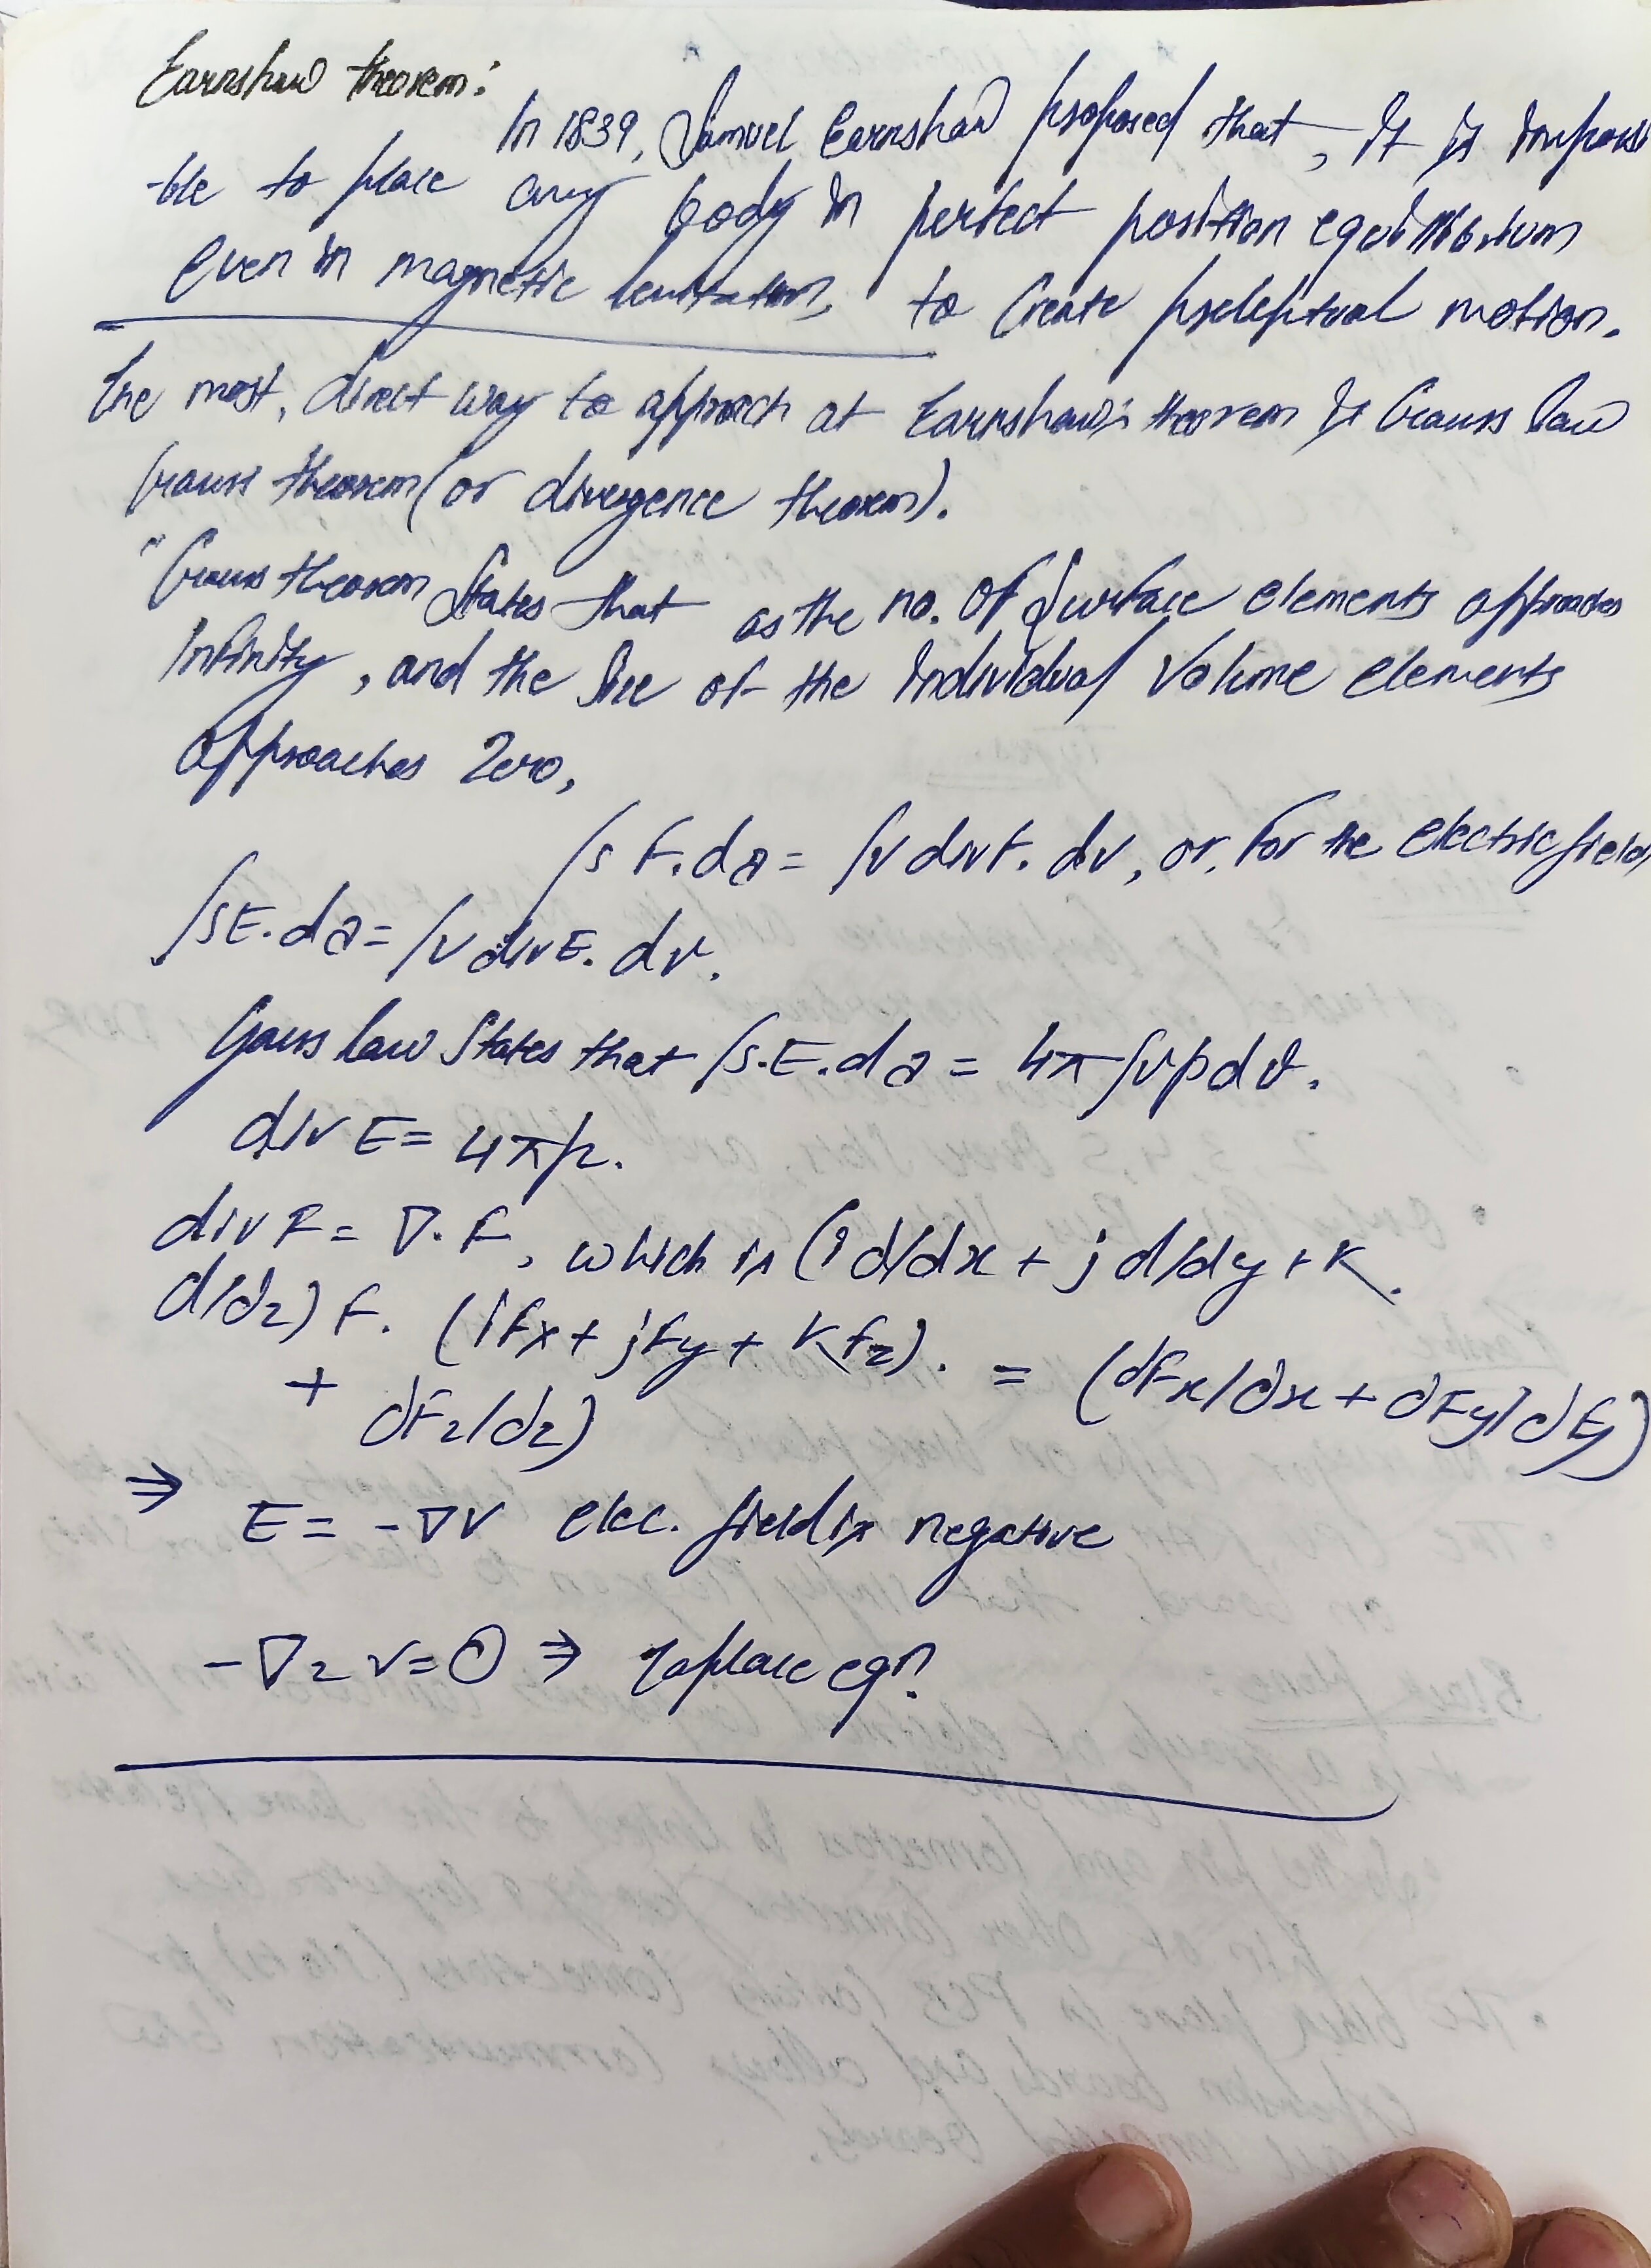 Earnshaw theorem:
In 1839, Samuel Earnshaw proposed that, It is impossi
-ble to place any body in perfect position equilibrium
even in magnetic levitation, to create motion.
The most, direct way to approach at Earnshaw's theorem is Gauss law
Gauss theorem (or divergence theorem).
"Gauss theorem States that as the no. of Surface elements approaches
Infinity, and the Size of the individual Volume elements
approaches Zero,
∫s F.da = ∫v divF. dv, or, for the electric field,
∫sE.da = ∫v divE. dv.
Gauss law States that ∫s.E.da = 4π∫vρdv.
div E = 4πρ.
div F = ∇.F, which is (i d/dx + j d/dy + k.
d/dz) F. (iFx + jFy + kFz). = (dFx/dx + dFy/dy)
+ dFz/dz)
⇒ E = -∇V elec. field is negative
-∇2 V=0 ⇒ Laplace eqn.